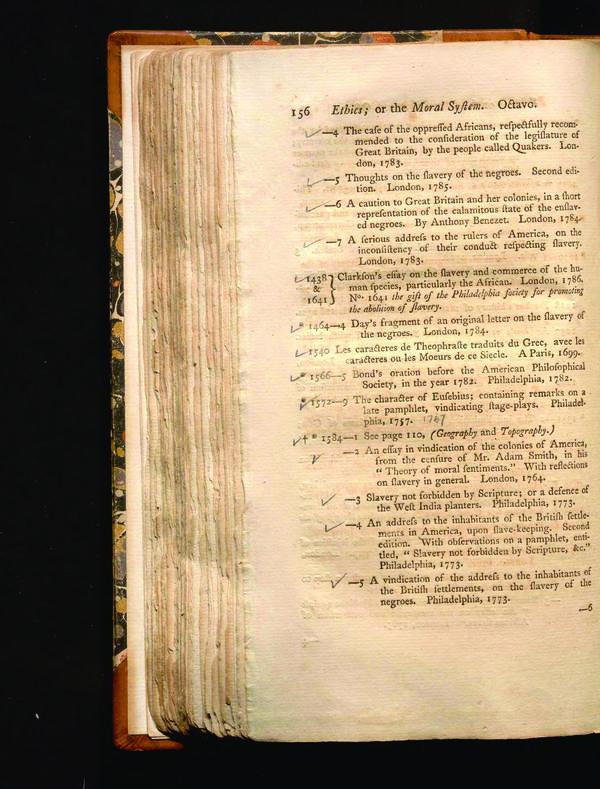 156 Ethics; or the Moral Syſtem. Octavo.
—4 The caſe of the oppreſſed Africans, reſpectfully recom-
mended to the conſideration of the legiſlature of
Great Britain, by the people called Quakers. Lon-
don, 1783.
—5 Thoughts on the ſlavery of the negroes. Second edi-
tion. London, 1785.
—6 A caution to Great Britain and her colonies, in a ſhort
repreſentation of the calamitous ſtate of the enſlav-
ed negroes. By Anthony Benezet. London, 1784.
—7 A ſerious addreſs to the rulers of America, on the
inconſiſtency of their conduct reſpecting ſlavery.
London, 1783.
1438 Clarkſon's eſſay on the ſlavery and commerce of the hu-
& man ſpecies, particularly the African. London, 1786.
1641 No. 1641 the gift of the Philadelphia ſociety for promoting
the abolition of ſlavery.
* 1464—4 Day's fragment of an original letter on the ſlavery of
the negroes. London, 1784.
1540 Les caracteres de Theophraſte traduits du Grec, avec les
caracteres ou les Moeurs de ce Siecle. A Paris, 1699.
* 1566—5 Bond's oration before the American Philoſophical
Society, in the year 1782. Philadelphia, 1782.
* 1572—9 The character of Euſebius; containing remarks on a
late pamphlet, vindicating ſtage-plays. Philadel-
phia, 1757. 1767
† * 1584—1 See page 110, (Geography and Topography.)
—2 An eſſay in vindication of the colonies of America,
from the cenſure of Mr. Adam Smith, in his
“ Theory of moral ſentiments.” With reflections
on ſlavery in general. London, 1764.
—3 Slavery not forbidden by Scripture; or a defence of
the Weſt India planters. Philadelphia, 1773.
—4 An addreſs to the inhabitants of the Britiſh ſettle-
ments in America, upon ſlave-keeping. Second
edition. With obſervations on a pamphlet, enti-
tled, “ Slavery not forbidden by Scripture, &c.”
Philadelphia, 1773.
—5 A vindication of the addreſs to the inhabitants of
the Britiſh ſettlements, on the ſlavery of the
negroes. Philadelphia, 1773.
—6